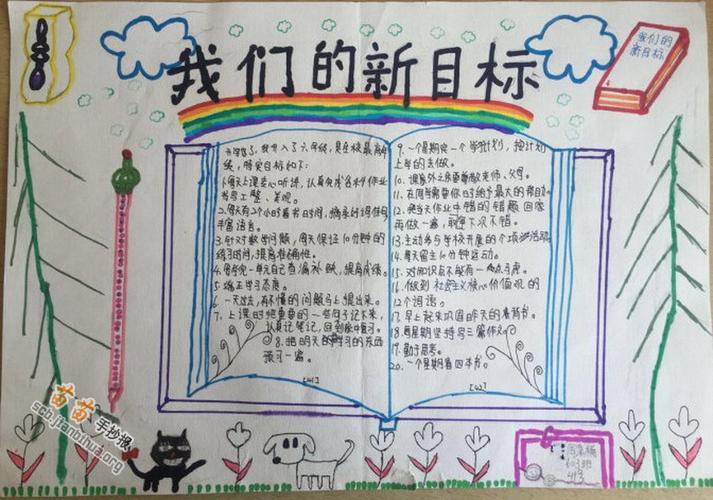 我们的新目标
我们的
新目标
开学了，我升入了六年级，是全校最高年
级，确实目标如下：
1.每天上课专心听讲，认真完成各科作业
书写工整、美观。
2.每天有2个小时看书时间，摘录好词佳句
丰富语言。
3.针对数学问题，每天保证10分钟的
练习时间，提高准确性。
4.每学完一单元自己查漏补缺，提高成绩。
5.端正学习态度。
6.一天过去，有不懂的问题马上提出来。
7.上课时把重要的一些句子记下来，
认真记笔记，回到家中复习。
8.把明天的学习的东西
预习一遍。
[41]
9.一个星期定一个学习计划，按计划
上的去做。
10.课意外之余要尊敬老师、父母。
11.在同学需要你时给予最大的帮助
12.把当天作业中错的错题回家
再做一遍，下次不错。
13.主动参与学校开展的个项活动
14.每天留出10分钟运动。
15.对知识点不能有一点马虎。
16.做到社会主义核心价值观的
12个词语。
17.早上起来巩固昨天的背书。
18.每星期坚持写三篇作文。
19.勤于思考。
20.一个星期看四本书。
[42]
苗苗
手抄报
schjtianbihua.org
603班
413